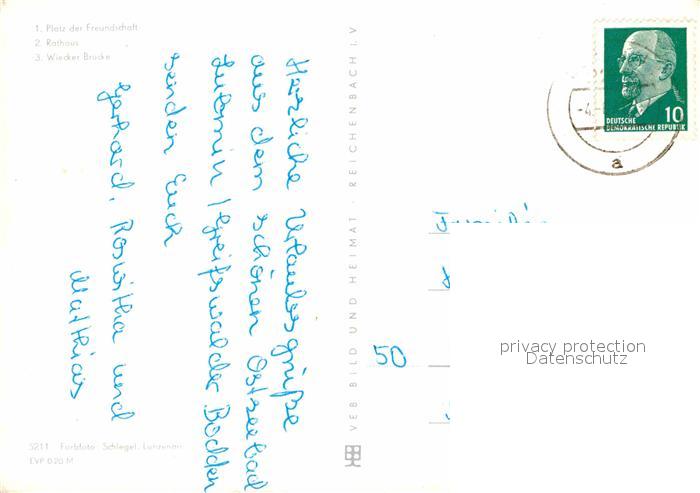 1. Platz der Freundschaft
2. Rathaus
3. Wiecker Brücke
Herzliche Urlaubsgrüße
aus dem schönen Ostseebad
Lubmin / Greifswalder Bodden
senden Euch
Gerhard, Roswitha und
Matthias
5211 Farbfoto: Schlegel, Lunzenau
EVP 0.20 M
VEB BILD UND HEIMAT · REICHENBACH I. V
DEUTSCHE
DEMOKRATISCHE REPUBLIK
10
a
50
privacy protection
Datenschutz